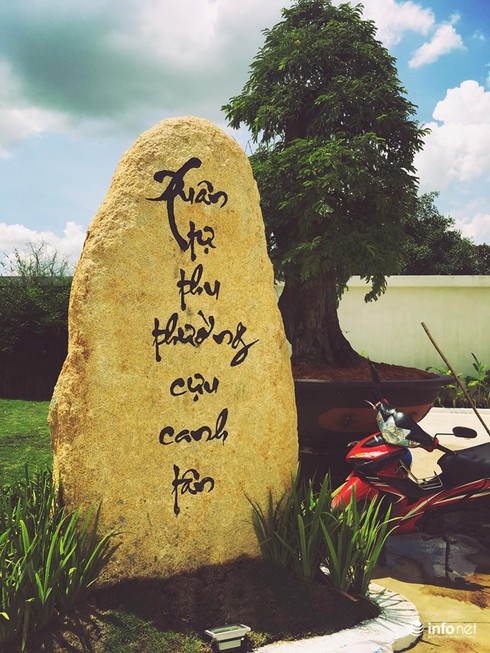 Xuân
tự
thu
thường
cựu
canh
tân
infonet